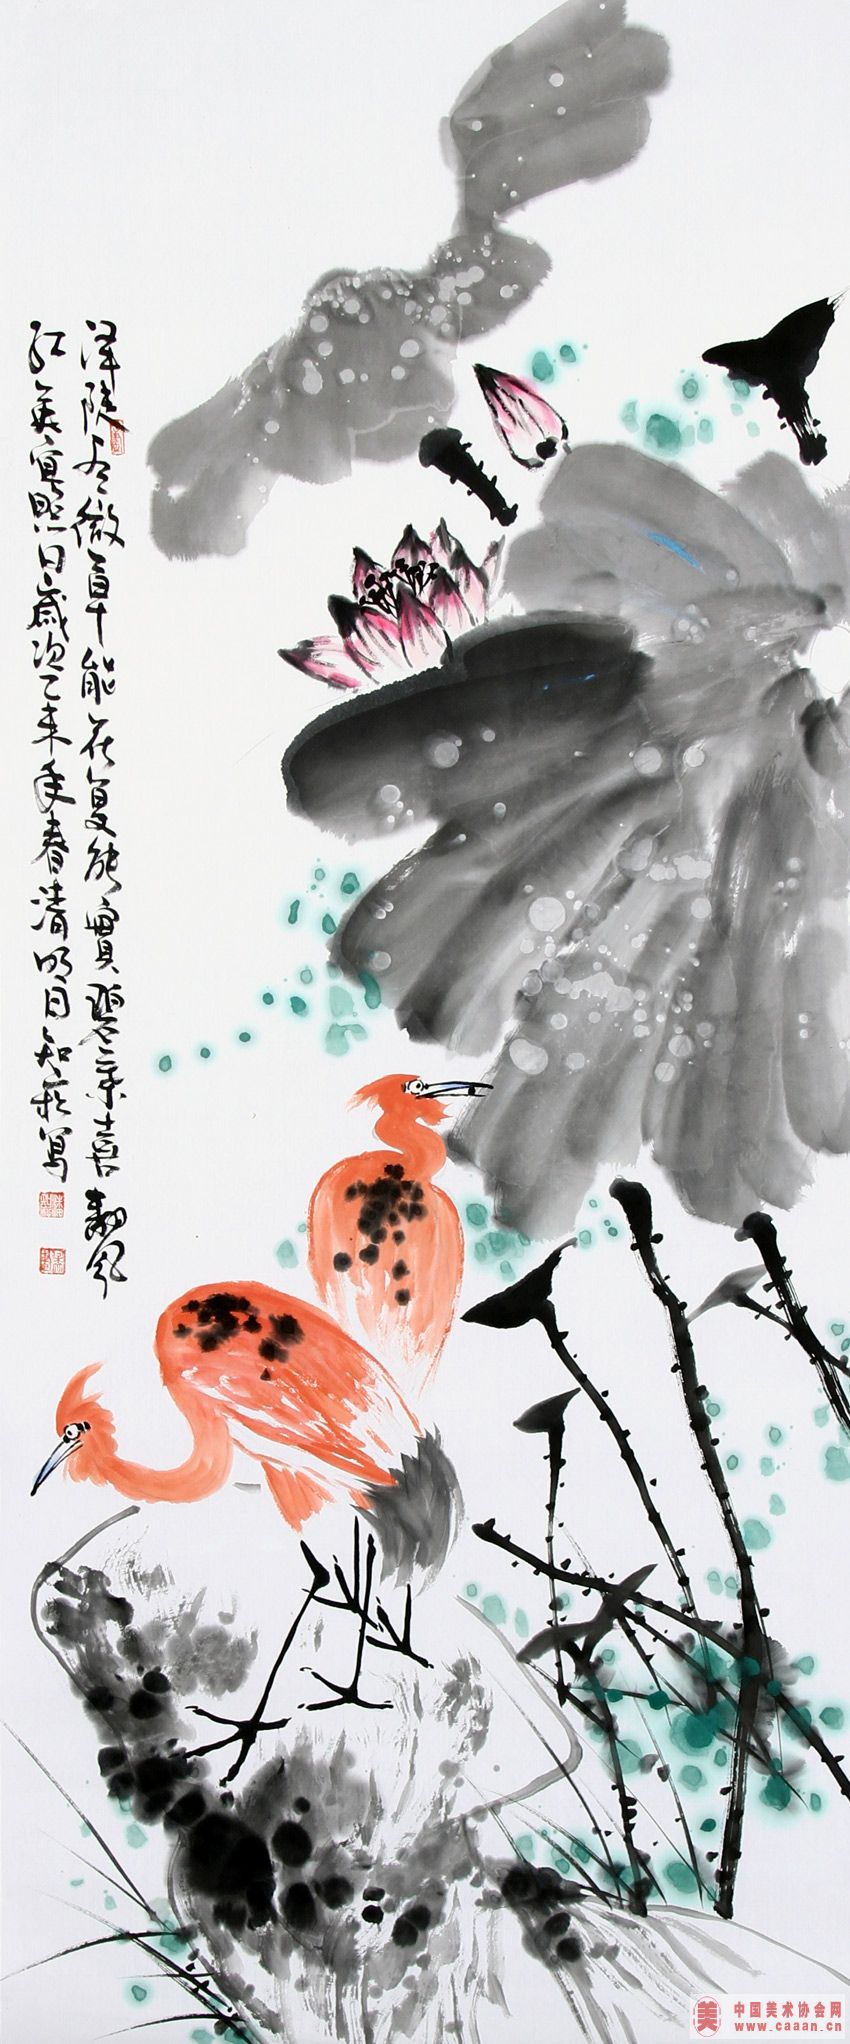 泽陂有微草能花复能实碧叶喜翻风
红英宜照日岁次乙未年春清明日知秋写
中国美术协会网
www.caaan.cn